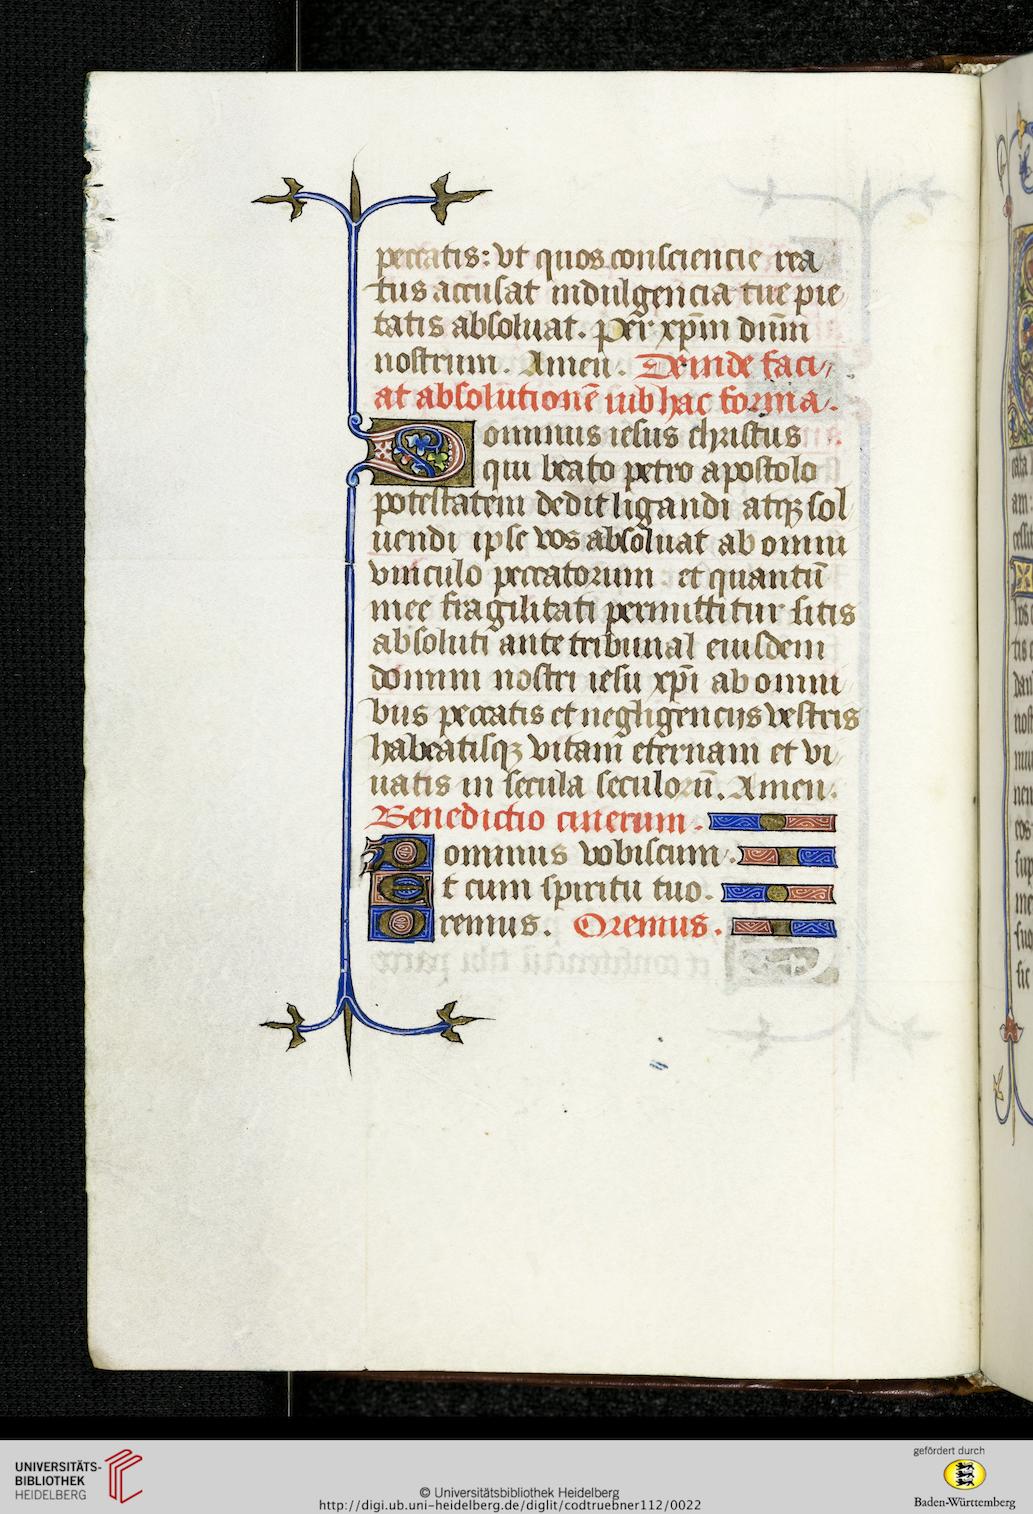 peccatis: vt quos consciencie rea
tus accusat indulgencia tue pie
tatis absoluat. Per xp̄m dn̄m
nostrum. Amen. Deinde faci
at absolutionē sub hac forma.
Dominus iesus christus
qui beato petro apostolo
potestatem dedit ligandi atqꝫ sol
uendi ipse vos absoluat ab omni
vinculo peccatorum et quantū
mee fragilitati permittitur sitis
absoluti ante tribunal eiusdem
domini nostri iesu xp̄i ab omni
bus peccatis et negligencijs vestris
habeatisqꝫ vitam eternam et vi
uatis in secula seculorū. Amen.
Benedictio cinerum.
Dominus vobiscum.
Et cum spiritu tuo.
Oremus. Oremus.
UNIVERSITÄTS-
BIBLIOTHEK
HEIDELBERG
© Universitätsbibliothek Heidelberg
http://digi.ub.uni-heidelberg.de/diglit/codtruebner112/0022
gefördert durch
Baden-Württemberg